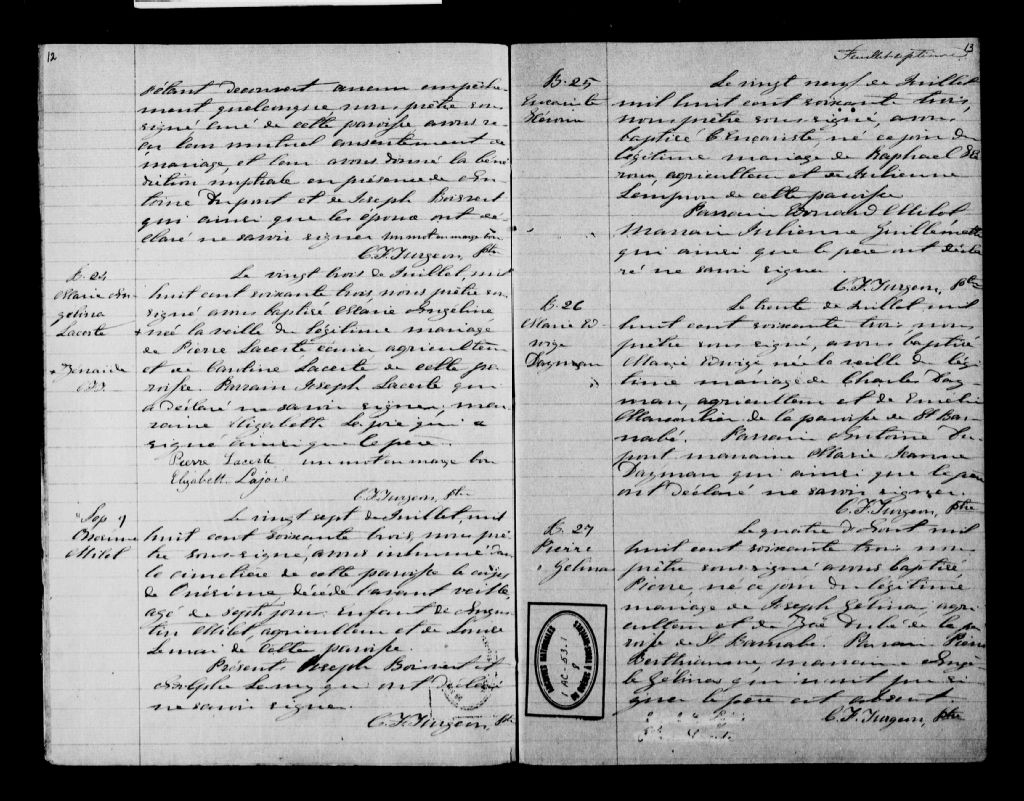 12
s'étant découvert aucun empêche-
ment quelconque nous prêtre sous
signé curé de cette paroisse avons re-
çu leur mutuel consentement de
mariage, et leur avons donné la béné
diction nuptiale en présence de An-
toine Dupont et de Joseph Boisvert
qui ainsi que les époux ont dé-
claré ne savoir signer un mot en marge bon
C. F. Turgeon, ptre
B. 24
Marie An-
gelina
Lacerte
+ Zénaide
Le vingt trois de Juillet, mil
huit cent soixante trois nous prêtre sou-
signé avons baptisé Marie Angéline
+ née la veille du légitime mariage
de Pierre Lacerte écuier agriculteur
et de Caroline Lacerte de cette pa-
roisse. Parrain Joseph Lacerte qui
a déclaré ne savoir signer, mar-
raine Elizabeth Lajoie qui a
signé ainsi que le père.
Pierre Lacerte un mot en marge bon
Elizabeth Lajoie
C. F. Turgeon, ptre
Sep 9
Onesime
Milot
Le vingt sept de Juillet, mil
huit cent soixante trois, nous prê-
tre sous-signé, avons inhumé dans
le cimetière de cette paroisse le corps
de Onésime décédé l'avant veille,
agé de sept jours enfant de Augus-
tin Milot, agriculteur et de Louise
Lemai de cette paroisse.
Présents Joseph Boisvert et
Adolphe Lamy qui ont déclaré
ne savoir signer.
C. F. Turgeon, ptre
13
Feuillet septieme
B. 25
Eucariste
Héroux
Le vingt neuf de Juillet
mil huit cent soixante trois,
nous prêtre sous-signé, avons
baptisé Eucariste, né ce jour du
légitime mariage de Raphael Hé
roux, agriculteur et de Julienne
Lampron de cette paroisse
Parrain Edouard Milot
Marraine Julienne Guillemette
qui ainsi que le père ont décla
ré ne savoir signer.
C. F. Turgeon, ptre
B. 26
Marie Ed-
wige
Dayman
Le trente de Juillet, mil
huit cent soixante trois nous
prêtre sous signé, avons baptisé
Marie Edwige, née la veille du légi
time mariage de Charles Day-
man, agriculteur et de Emélie
de la paroisse de St Bar-
nabé. Parrain Antoine Du-
pont marraine Marie Jeanne
Dayman qui ainsi que le père
ont déclaré ne savoir signer.
C. F. Turgeon, ptre
B. 27
Pierre
Gelinas
Le quatre d'Aout mil
huit cent soixante trois nous
prêtre sous signé avons baptisé
Pierre, né ce jour du légitime
mariage de Joseph Gelinas agri-
culteur et de Zoé Dubé de la pa-
roisse de St Barnabé. Parrain Pierre
Berthiaume, marraine Angè-
le Gelinas qui n'ont pu si-
gner le père est absent
C. F. Turgeon, ptre
ARCHIVES NATIONALES
1 AC 53.1
8
DU QUÉBEC À TROIS-RIVIÈRES